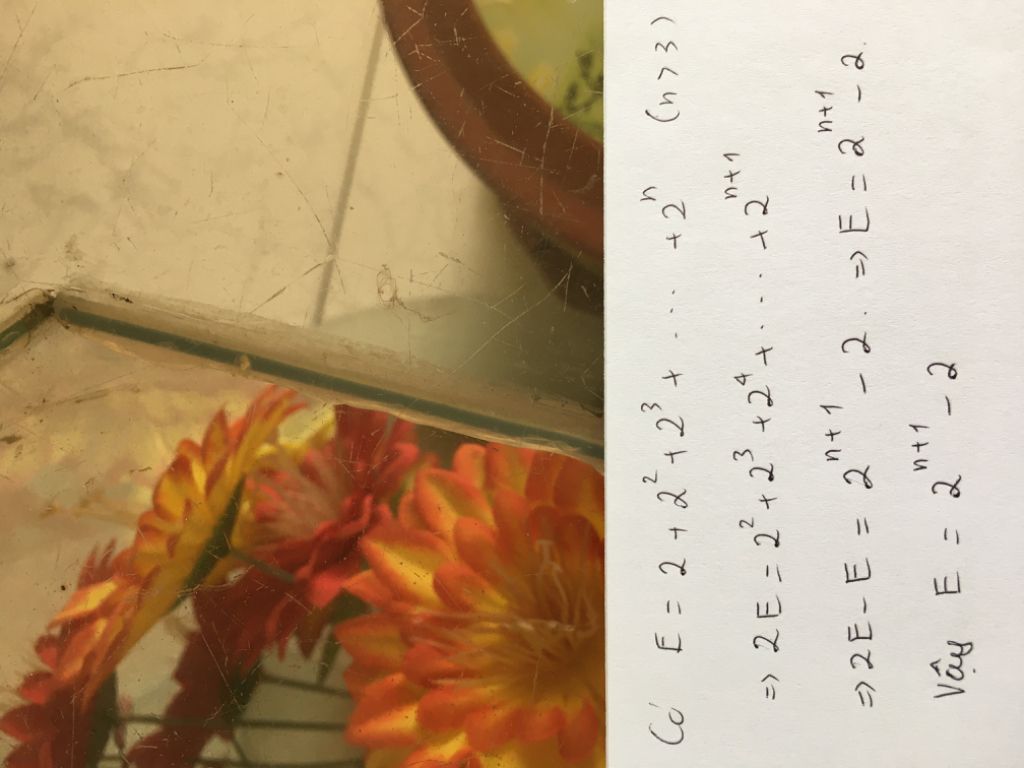 Có E = 2 + 2² + 2³ + . . . + 2ⁿ (n > 3)
=> 2E = 2² + 2³ + 2⁴ + . . . + 2ⁿ⁺¹
=> 2E - E = 2ⁿ⁺¹ - 2 . => E = 2ⁿ⁺¹ - 2.
Vậy E = 2ⁿ⁺¹ - 2